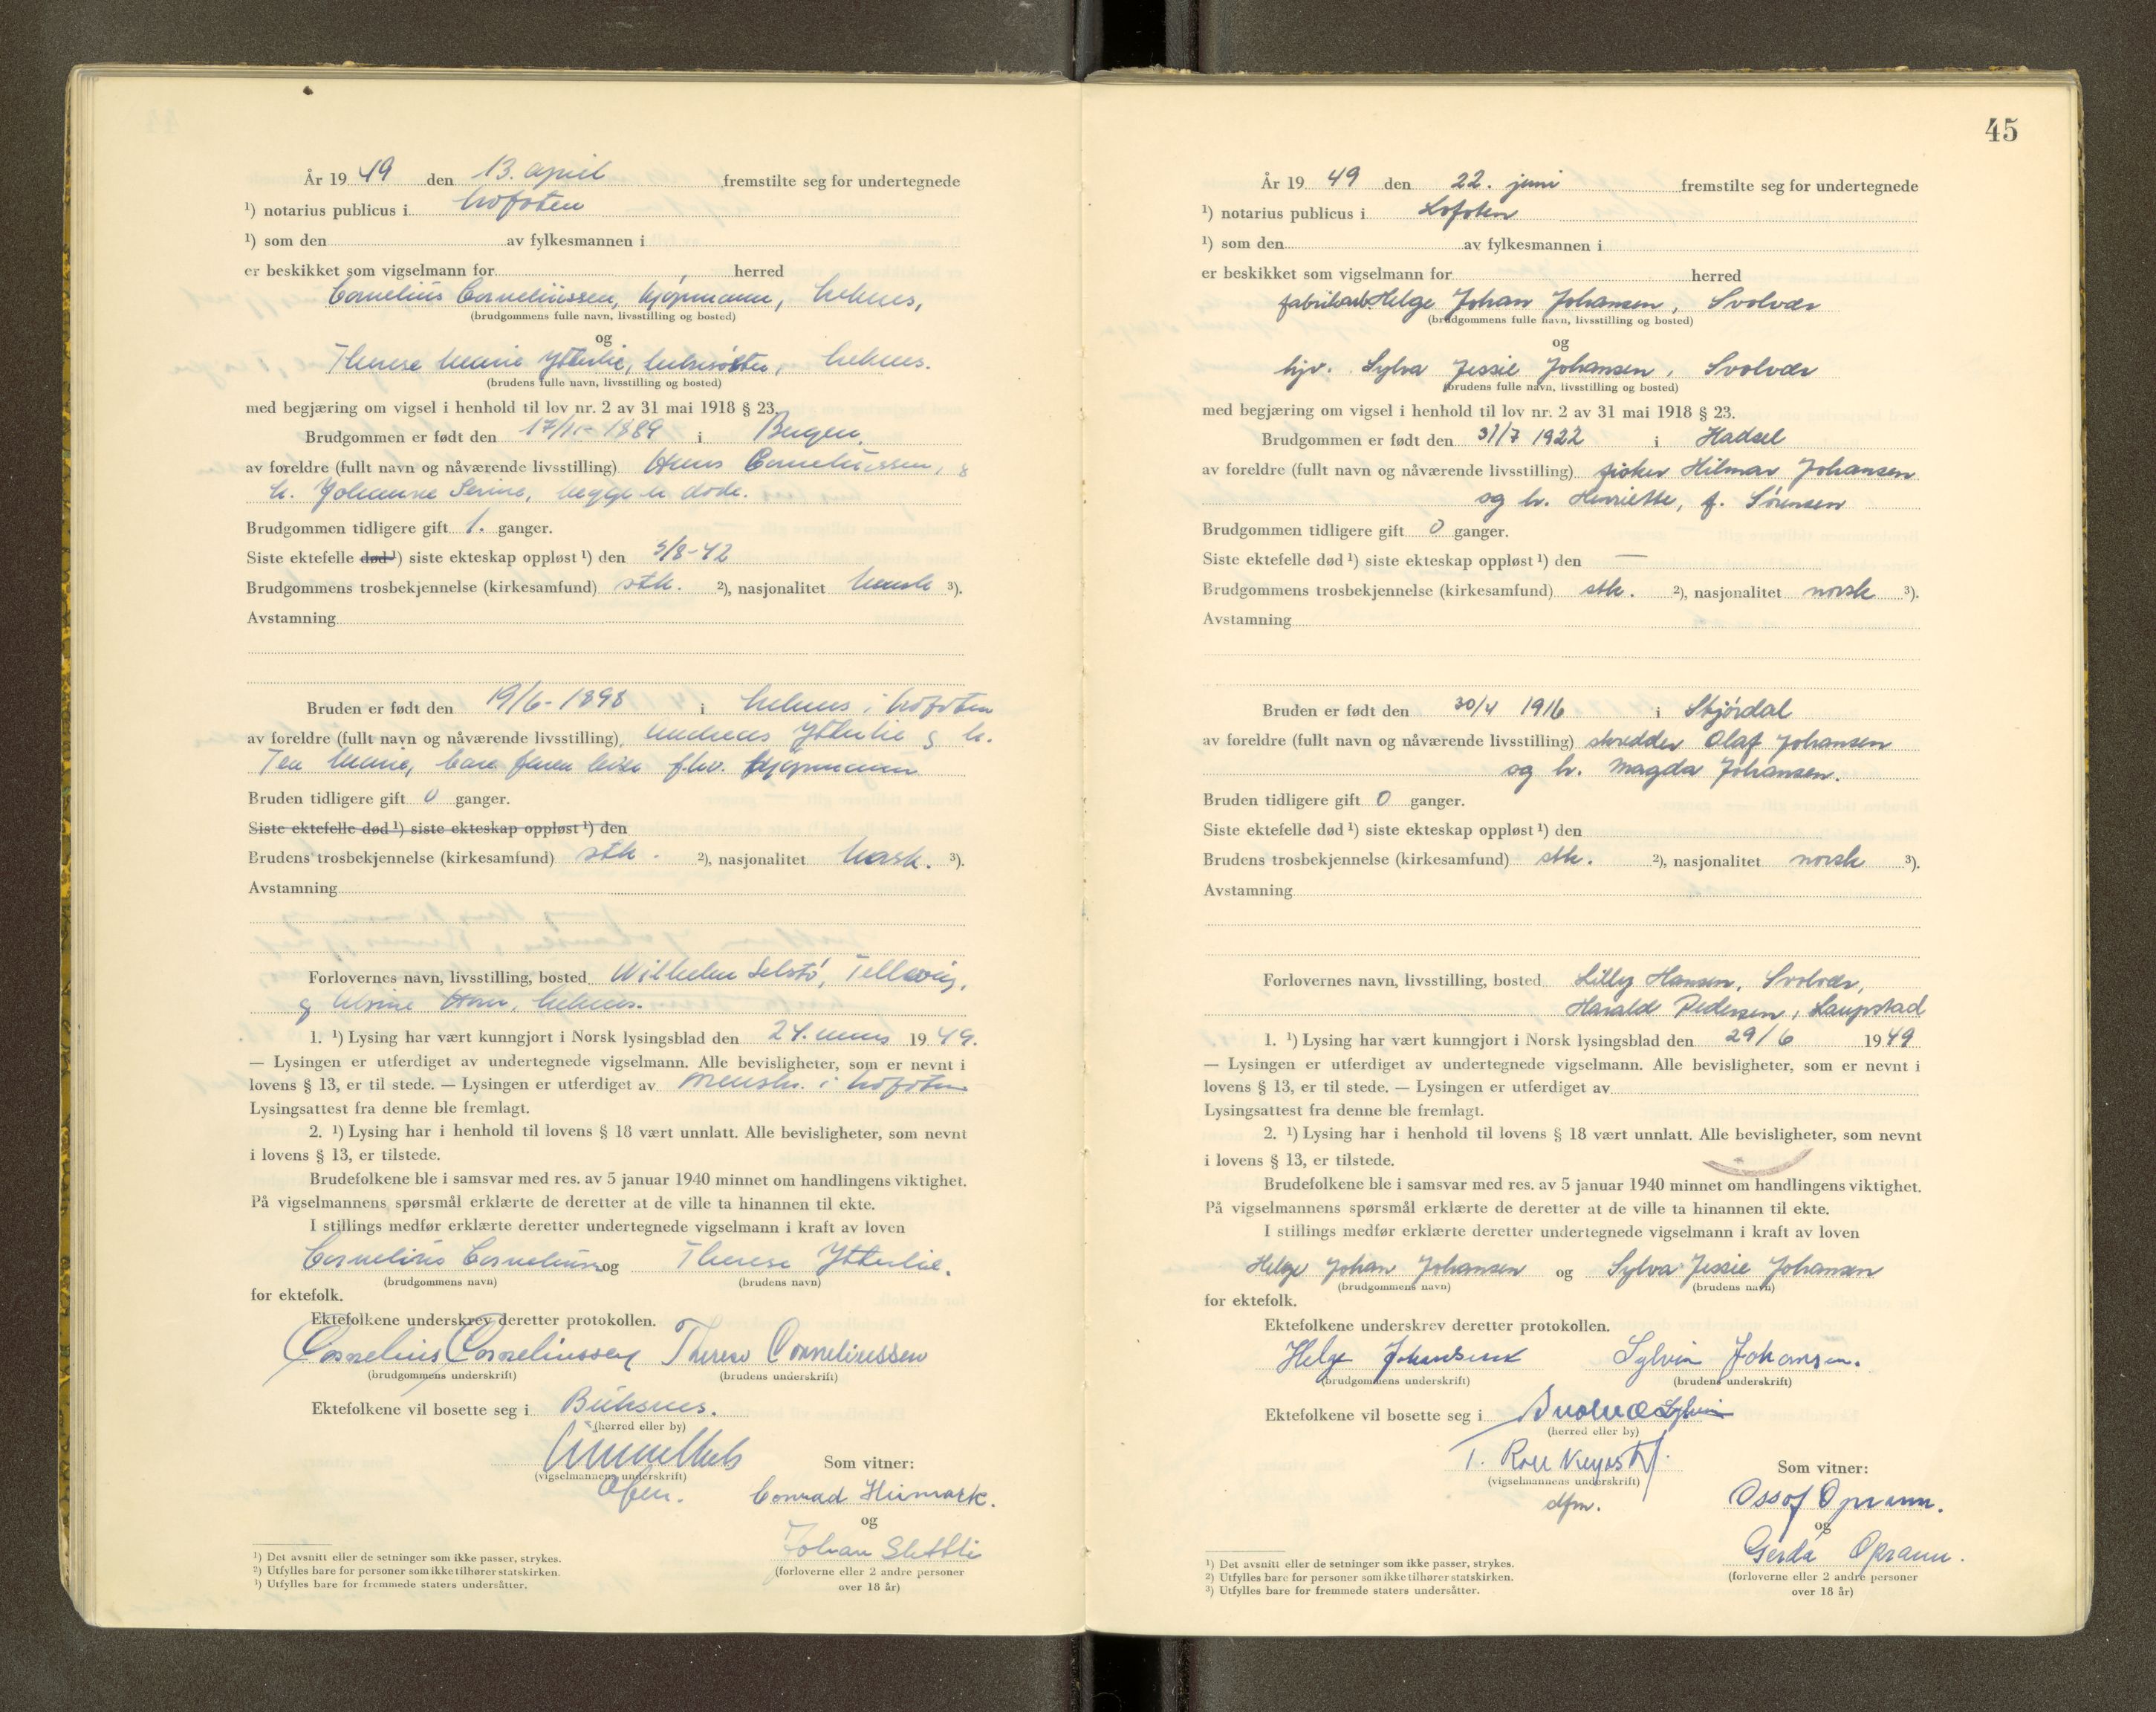 År 19 49 den 13. april fremstilte seg for undertegnede
¹) notarius publicus i Lofoten
¹) som den av fylkesmannen i
er beskikket som vigselmann for herred
Cornelius Corneliussen, kjøpmann, Leknes,
(brudgommens fulle navn, livsstilling og bosted)
og
Therese Marie Ytterlie, helsesøster, Leknes.
(brudens fulle navn, livsstilling og bosted)
med begjæring om vigsel i henhold til lov nr. 2 av 31 mai 1918 § 23.
Brudgommen er født den 17/11-1889 i Bergen.
av foreldre (fullt navn og nåværende livsstilling) Hans Corneliussen, g
h. Johanne Serine, begge er døde.
Brudgommen tidligere gift 1. ganger.
Siste ektefelle død ¹) siste ekteskap oppløst ¹) den 5/8-42
Brudgommens trosbekjennelse (kirkesamfund) stk. ²), nasjonalitet norsk ³).
Avstamning
Bruden er født den 19/6-1898 i Leknes i Lofoten
av foreldre (fullt navn og nåværende livsstilling) Andreas Ytterlie g h.
Tea Marie, bare faren lever fhv. kjøpmann
Bruden tidligere gift 0 ganger.
Siste ektefelle død ¹) siste ekteskap oppløst ¹) den
Brudens trosbekjennelse (kirkesamfund) stk. ²), nasjonalitet Norsk. ³).
Avstamning
Forlovernes navn, livsstilling, bosted Wilhelm Selstø,
g Leknes.
1. ¹) Lysing har vært kunngjort i Norsk lysingsblad den 24. mars 19 49.
— Lysingen er utferdiget av undertegnede vigselmann. Alle bevisligheter, som er nevnt i
lovens § 13, er til stede. — Lysingen er utferdiget av sorenskr. i Lofoten
Lysingsattest fra denne ble fremlagt.
2. ¹) Lysing har i henhold til lovens § 18 vært unnlatt. Alle bevisligheter, som nevnt
i lovens § 13, er tilstede.
Brudefolkene ble i samsvar med res. av 5 januar 1940 minnet om handlingens viktighet.
På vigselmannens spørsmål erklærte de deretter at de ville ta hinannen til ekte.
I stillings medfør erklærte deretter undertegnede vigselmann i kraft av loven
Cornelius Corneliussen og Therese Ytterlie.
(brudgommens navn) (brudens navn)
for ektefolk.
Ektefolkene underskrev deretter protokollen.
Cornelius Corneliussen Therese Corneliussen
(brudgommens underskrift) (brudens underskrift)
Ektefolkene vil bosette seg i Buksnes.
(herred eller by)
(vigselmannens underskrift) Som vitner:
Conrad Heimark.
og
Johan Slettli
(forloverne eller 2 andre personer
over 18 år)
¹) Det avsnitt eller de setninger som ikke passer, strykes.
²) Utfylles bare for personer som ikke tilhører statskirken.
³) Utfylles bare for fremmede staters undersåtter.
45
År 19 49 den 22. juni fremstilte seg for undertegnede
¹) notarius publicus i Lofoten
¹) som den av fylkesmannen i
er beskikket som vigselmann for herred
fabrikarb. Helge Johan Johansen, Svolvær
(brudgommens fulle navn, livsstilling og bosted)
og
hjv. Sylva Jessie Johansen, Svolvær
(brudens fulle navn, livsstilling og bosted)
med begjæring om vigsel i henhold til lov nr. 2 av 31 mai 1918 § 23.
Brudgommen er født den 31/7 1922 i Hadsel
av foreldre (fullt navn og nåværende livsstilling) fisker Hilmar Johansen
og h. Henriette, f. Sørensen
Brudgommen tidligere gift 0 ganger.
Siste ektefelle død ¹) siste ekteskap oppløst ¹) den —
Brudgommens trosbekjennelse (kirkesamfund) stk. ²), nasjonalitet norsk ³).
Avstamning
Bruden er født den 30/4 1916 i Stjørdal
av foreldre (fullt navn og nåværende livsstilling) skredder Olaf Johansen
og h. Magda Johansen.
Bruden tidligere gift 0 ganger.
Siste ektefelle død ¹) siste ekteskap oppløst ¹) den
Brudens trosbekjennelse (kirkesamfund) stk. ²), nasjonalitet norsk ³).
Avstamning
Forlovernes navn, livsstilling, bosted Lilly Hansen, Svolvær,
Harald Pedersen, Laupstad
1. ¹) Lysing har vært kunngjort i Norsk lysingsblad den 29/6 19 49
— Lysingen er utferdiget av undertegnede vigselmann. Alle bevisligheter, som er nevnt i
lovens § 13, er til stede. — Lysingen er utferdiget av
Lysingsattest fra denne ble fremlagt.
2. ¹) Lysing har i henhold til lovens § 18 vært unnlatt. Alle bevisligheter, som nevnt
i lovens § 13, er tilstede.
Brudefolkene ble i samsvar med res. av 5 januar 1940 minnet om handlingens viktighet.
På vigselmannens spørsmål erklærte de deretter at de ville ta hinannen til ekte.
I stillings medfør erklærte deretter undertegnede vigselmann i kraft av loven
Helge Johan Johansen og Sylva Jessie Johansen
(brudgommens navn) (brudens navn)
for ektefolk.
Ektefolkene underskrev deretter protokollen.
Helge Johansen Sylvia Johansen.
(brudgommens underskrift) (brudens underskrift)
Ektefolkene vil bosette seg i Svolvæ
(herred eller by)
(vigselmannens underskrift) Som vitner:
dfm.
og
Gerda
(forloverne eller 2 andre personer
over 18 år)
¹) Det avsnitt eller de setninger som ikke passer, strykes.
²) Utfylles bare for personer som ikke tilhører statskirken.
³) Utfylles bare for fremmede staters undersåtter.